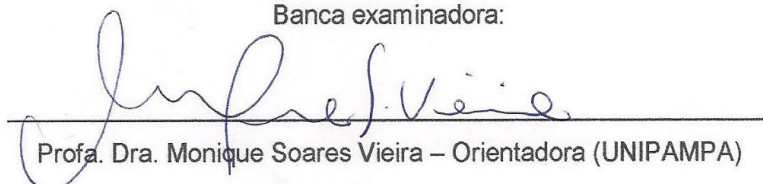 Banca examinadora:
S. Vieira
Profa. Dra. Monique Soares Vieira – Orientadora (UNIPAMPA)